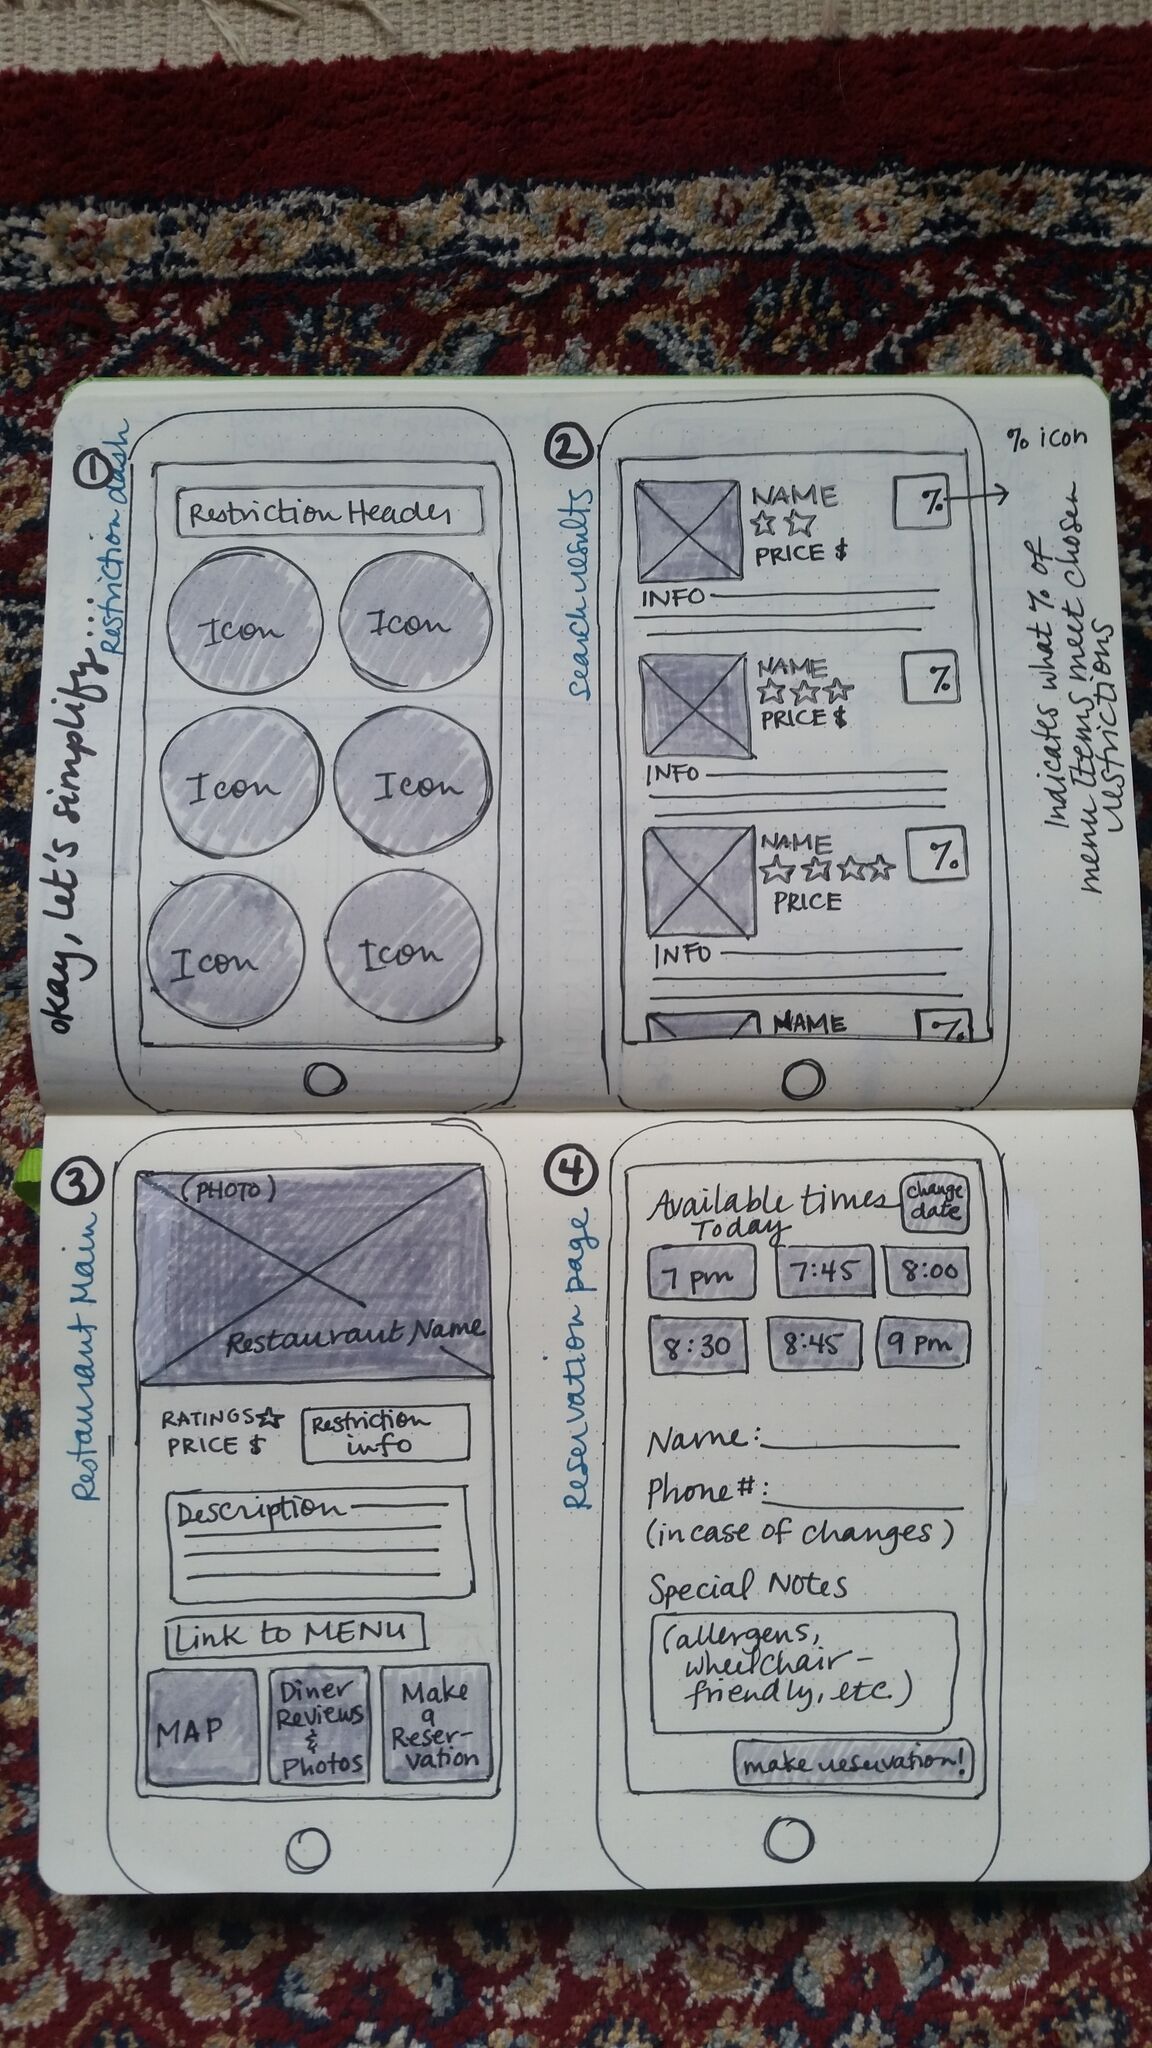 okay, let's simplify...
1
Restriction dash
Restriction Header
Icon Icon
Icon Icon
Icon Icon
2
search results
NAME
PRICE $
%
INFO
NAME
PRICE $
%
INFO
NAME
PRICE
%
INFO
NAME
%
% icon
Indicates what % of
menu items meet chosen
restrictions
3
Restaurant Main
(PHOTO)
Restaurant Name
RATINGS
PRICE $
Restriction
info
Description
Link to MENU
MAP
Diner
Reviews
&
Photos
Make
a
Reser-
vation
4
Reservation page
Available times
Today
change
date
7 pm 7:45 8:00
8:30 8:45 9 pm
Name:
Phone#:
(in case of changes)
Special Notes
(allergens,
wheelchair-
friendly, etc.)
make reservation!